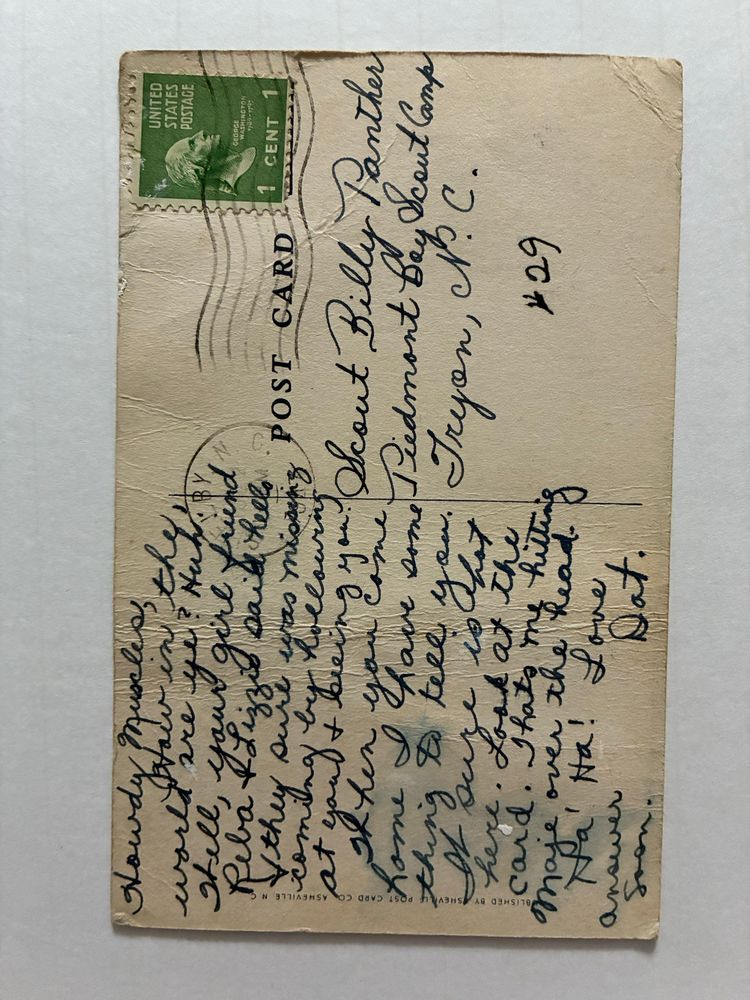 Howdy Muscles,
How in the
world are ye? Huh.
Well, your girl friend
Reba & Lizzie said hello
& they sure was missing
coming by hollouring
at you & seeing you.
When you come
home I have some
thing to tell you.
It sure is hot
here. Look at the
card. Thats me hitting
Maje over the head.
Ha! Ha! Love
Dot.
answer
soon.
POST CARD
UNITED
STATES
POSTAGE
GEORGE
WASHINGTON
1 CENT 1
Scout Billy Panther
Piedmont Boy Scout Camp
Tryon, N.C.
#29
BLISHED BY ASHEVILLE POST CARD CO. ASHEVILLE N C